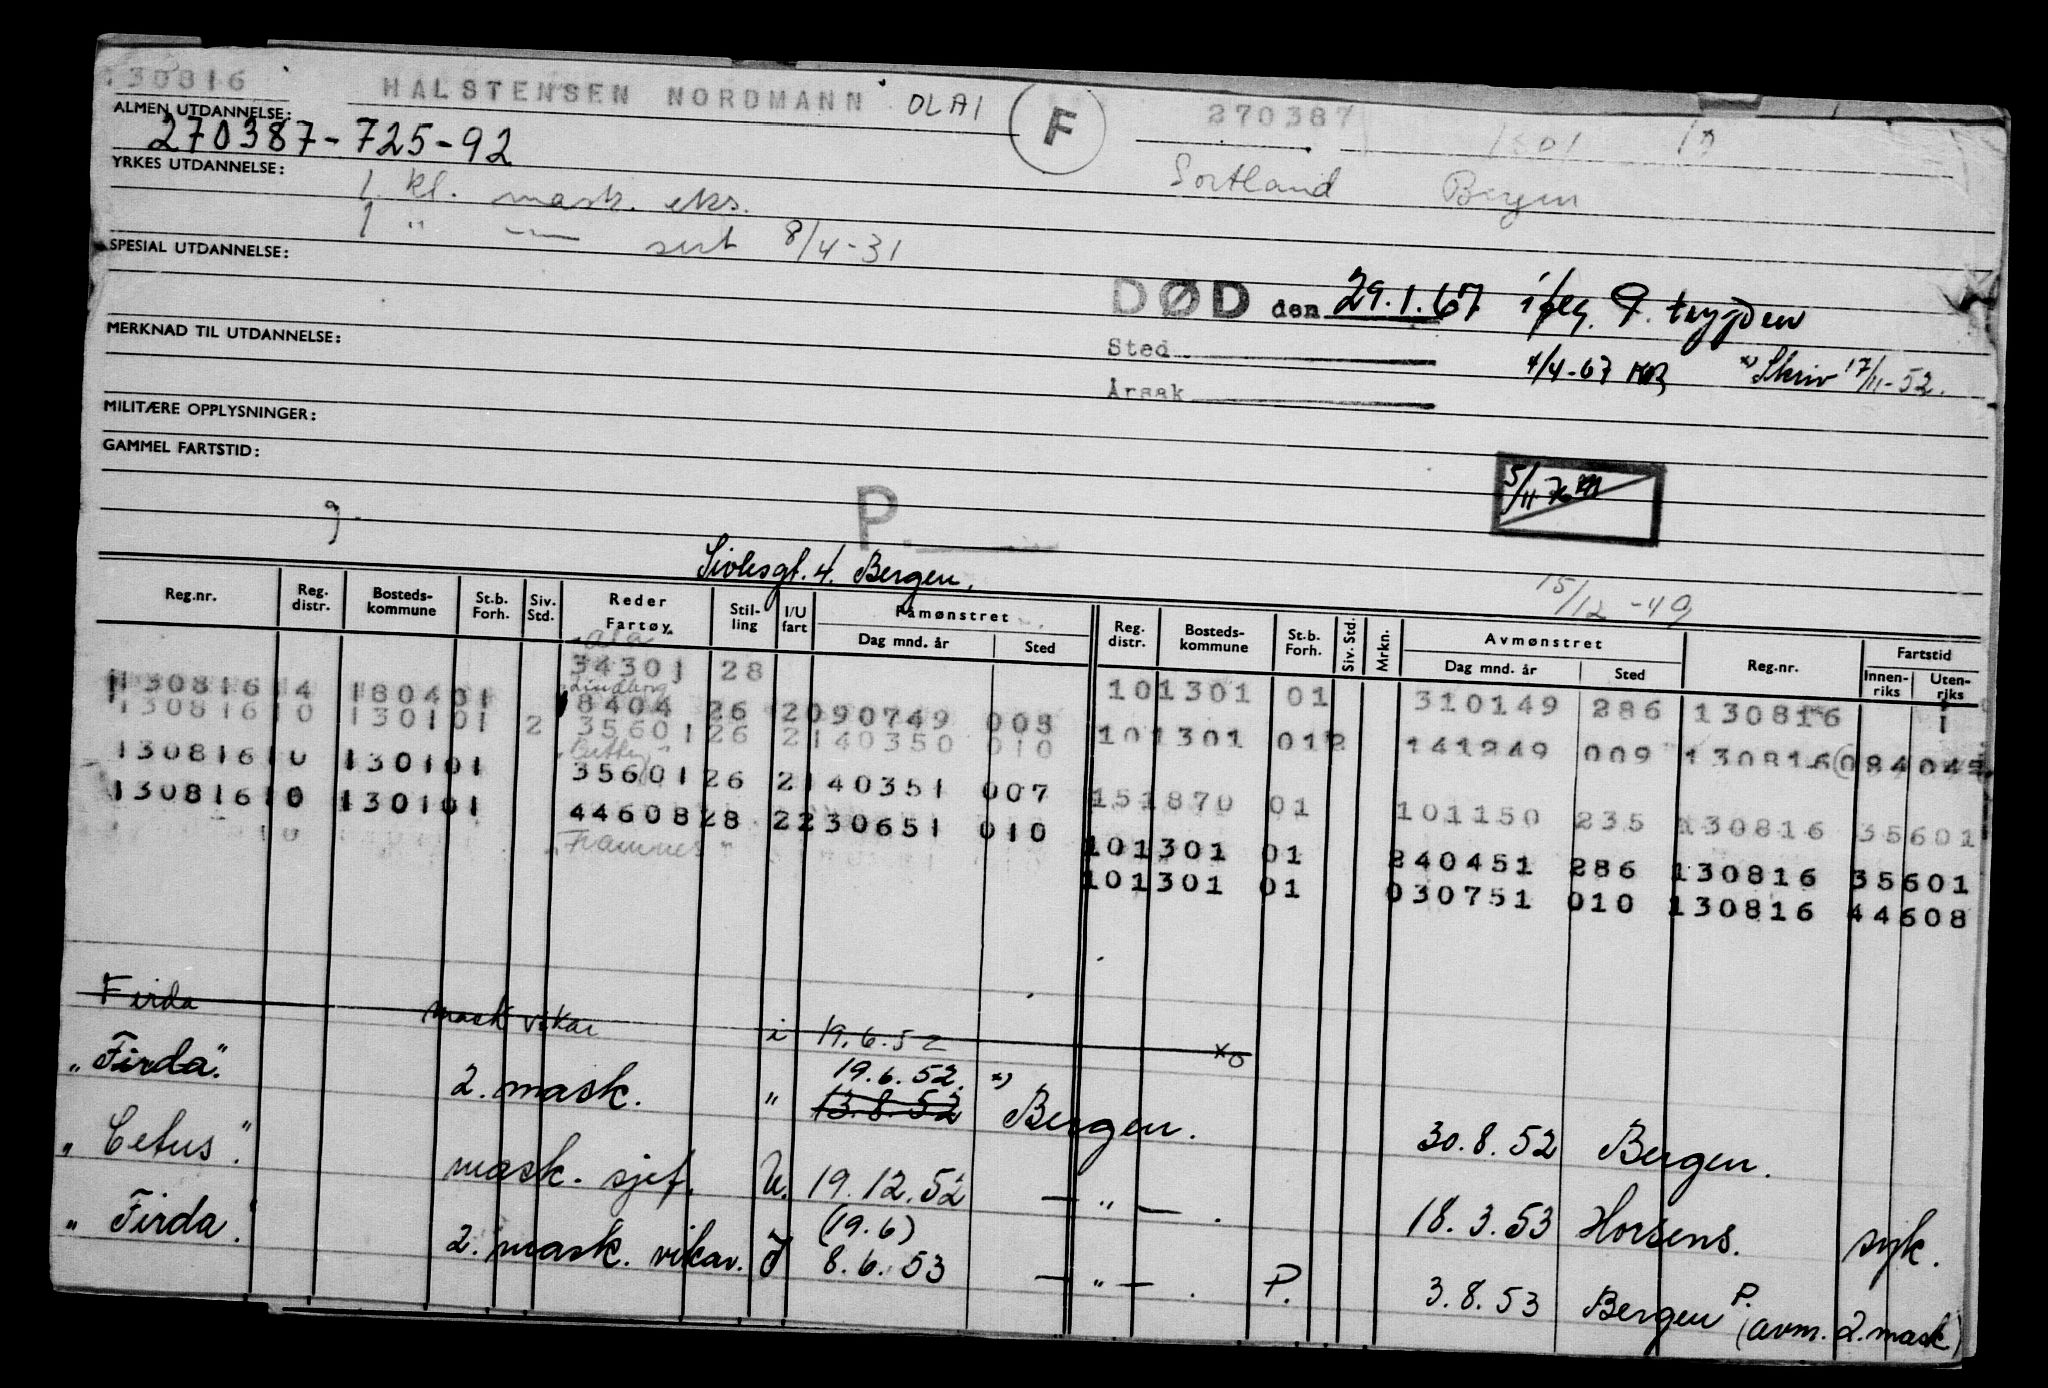 130816 HALSTENSEN NORDMANN OLAI F 270387
ALMEN UTDANNELSE:
270387-725-92
Sortland Bergen
YRKES UTDANNELSE:
1. kl. mask. eks.
1 " — sert 8/4-31
SPESIAL UTDANNELSE:
DØD den 29.1.67 ifлg. trygden
Sted
4/4-67 x) Skriv 17/11-52.
MERKNAD TIL UTDANNELSE:
Årsak
MILITÆRE OPPLYSNINGER:
GAMMEL FARTSTID:
5/11 76
P.
g.
Sivlesgt. 4. Bergen.
15/12-49
Reg.nr. Reg. distr. Bosteds-kommune St.b. Forh. Siv. Std. Reder Fartøy Stil-ling I/U fart Påmønstret Dag mnd. år Sted Reg. distr. Bosteds-kommune St.b. Forh. Siv. Std. Mrkn. Avmønstret Dag mnd. år Sted Reg.nr. Fartstid Innen-riks Uten-riks
34301 28
101301 01 310149 286 130816
Lindborg
130816 14 180401 8404 26 2 090749 005
101301 01 2 141249 009 130816 08404
130816 10 130101 2 35601 26 2 140350 010
151870 01 101150 235 130816 35601
130816 10 130101 35601 26 2 140351 007
101301 01 240451 286 130816 35601
130816 10 130101 44608 28 2 230651 010
101301 01 030751 010 130816 44608
"Framnes"
Firda mask vikar i 19.6.52
"Firda". 2. mask. " 19.6.52. x) Bergen. 30.8.52 Bergen.
13.8.52
"Cetus". mask. sjef. U. 19.12.52 — " — . 18.3.53 Horsens. syk.
(19.6)
"Firda". 2. mask. vikar. I 8.6.53 — " — . P. 3.8.53 Bergen P. (avm. 2. mask)